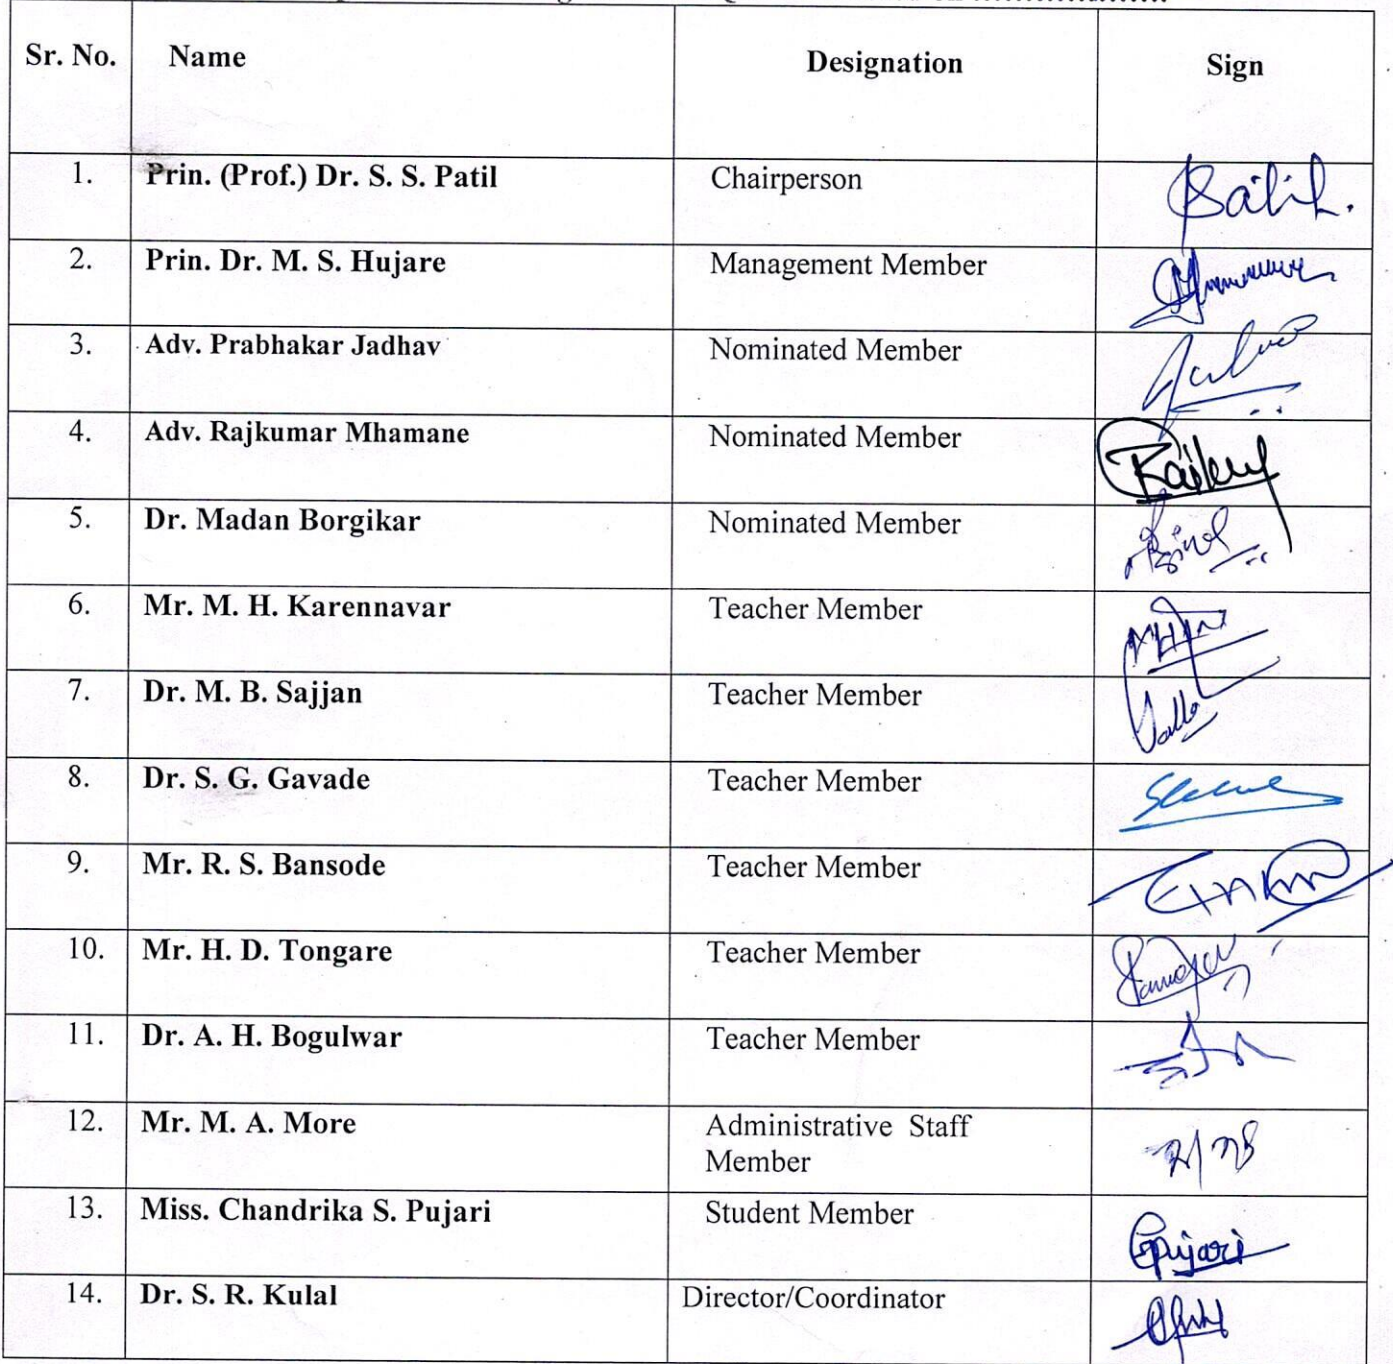 Sr. No. Name Designation Sign
1. Prin. (Prof.) Dr. S. S. Patil Chairperson
2. Prin. Dr. M. S. Hujare Management Member
3. Adv. Prabhakar Jadhav Nominated Member
4. Adv. Rajkumar Mhamane Nominated Member
5. Dr. Madan Borgikar Nominated Member
6. Mr. M. H. Karennavar Teacher Member
7. Dr. M. B. Sajjan Teacher Member
8. Dr. S. G. Gavade Teacher Member
9. Mr. R. S. Bansode Teacher Member
10. Mr. H. D. Tongare Teacher Member
11. Dr. A. H. Bogulwar Teacher Member
12. Mr. M. A. More Administrative Staff
Member
13. Miss. Chandrika S. Pujari Student Member Cpujari
14. Dr. S. R. Kulal Director/Coordinator